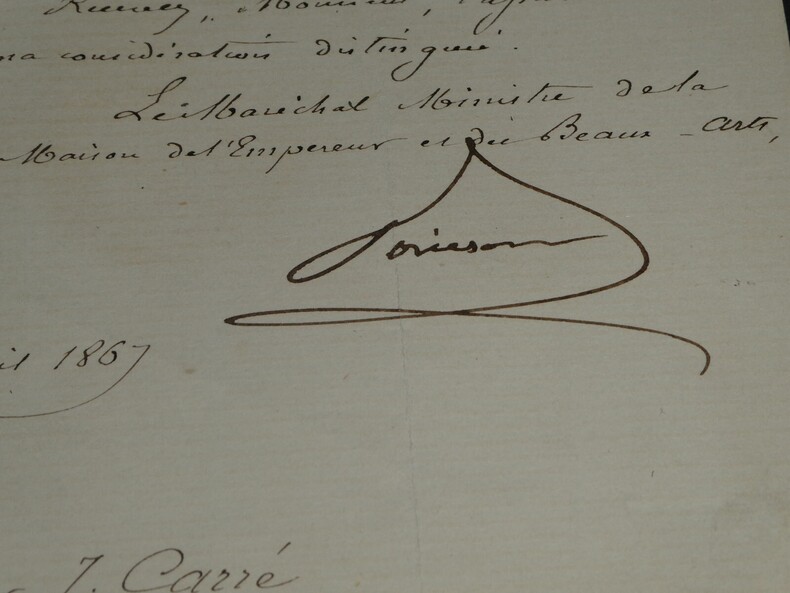 Recevez, Monsieur,
ma considération distinguée.
Le Maréchal Ministre de la
Maison de l'Empereur et des Beaux-Arts,
il 1867
J. Carré